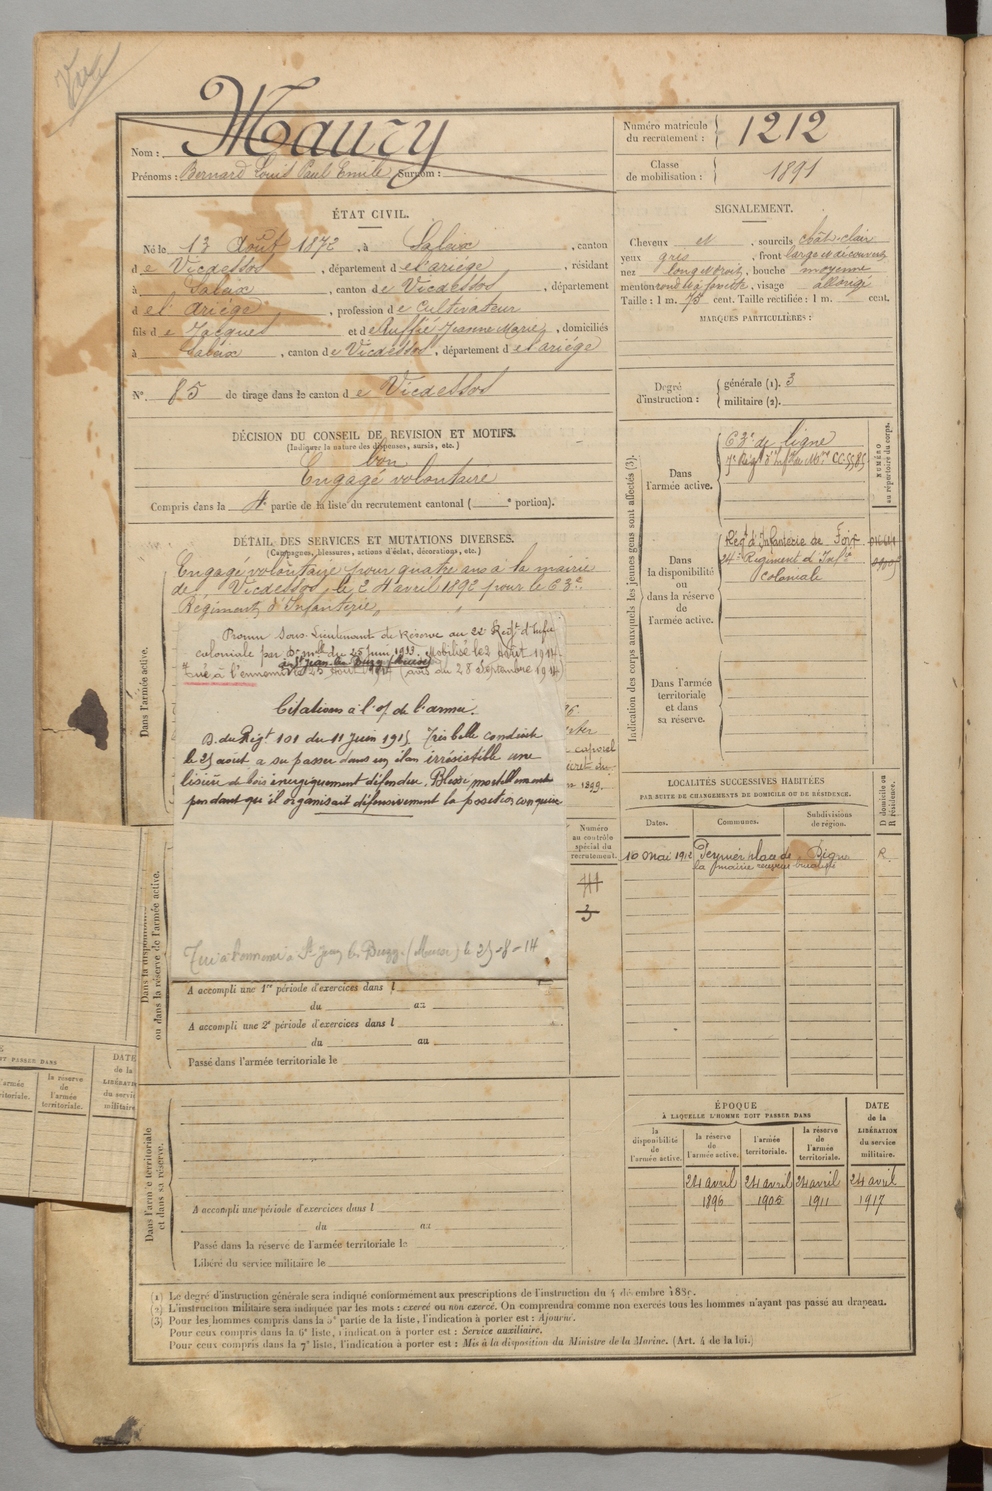 Vu
Maury
Nom :
Prénoms : Bernard Louis Paul Emile Surnom :
Numéro matricule du recrutement : 1212
Classe de mobilisation : 1891
ÉTAT CIVIL.
Né le 13 Août 1872, à Saleix, canton
de Vicdessos, département de l'ariège, résidant
à Saleix, canton de Vicdessos, département
de l'Ariège, profession de Cultivateur
fils de Jacques et de Ruffié Jeanne Marie, domiciliés
à Saleix, canton de Vicdessos, département de l'ariège
N° 85 de tirage dans le canton de Vicdessos
SIGNALEMENT.
Cheveux et, sourcils chât-clair
yeux gris, front large et découvert
nez long et droit, bouche moyenne
menton rond à fossette, visage allongé
Taille : 1 m. 75 cent. Taille rectifiée : 1 m. cent.
MARQUES PARTICULIÈRES :
Degré d'instruction : générale (1). 3
militaire (2).
DÉCISION DU CONSEIL DE REVISION ET MOTIFS.
(Indiquer la nature des dispenses, sursis, etc.)
bon
Engagé volontaire
Compris dans la 4e partie de la liste du recrutement cantonal ( e portion).
DÉTAIL DES SERVICES ET MUTATIONS DIVERSES.
(Campagnes, blessures, actions d'éclat, décorations, etc.)
Dans l'armée active.
Engagé volontaire pour quatre ans à la mairie
de Vicdessos, le 24 avril 1892 pour le 63e
Régiment d'Infanterie,
Promu Sous-Lieutenant de Réserve au 22e Régt d'Infie
coloniale par Don mlle du 25 juin 1913. Mobilisé le 2 août 1914.
à St Jean-les-Buzy (Meuse)
Tué à l'ennemi le 25 août 1914 (avis du 28 Septembre 1914)
Citations à l'O/ de l'armée.
O. du Régt 101 du 11 Juin 1915 Très belle conduite
le 25 août, a su passer dans un élan irrésistible une
lisière de bois énergiquement défendue. Blessé mortellement
pendant qu'il organisait défensivement la position conquise
Tué à l'ennemi à St Jean les Buzy (Meuse) le 25-8-14
caporal
1899.
Numéro au contrôle spécial du recrutement.
3
Dans la disponibilité ou dans la réserve de l'armée active.
A accompli une 1re période d'exercices dans l
du au
A accompli une 2e période d'exercices dans l
du au
Passé dans l'armée territoriale le
Dans l'armée territoriale et dans sa réserve.
A accompli une période d'exercices dans l
du au
Passé dans la réserve de l'armée territoriale le
Libéré du service militaire le
Indication des corps auxquels les jeunes gens sont affectés (3).
NUMÉRO au répertoire du corps.
Dans l'armée active.
63e de ligne
7e Régt d'Infie de Mne
Dans la disponibilité ou dans la réserve de l'armée active.
Régt d'Infanterie de Foix
24e Régiment d'Infie
Coloniale
Dans l'armée territoriale et dans sa réserve.
LOCALITÉS SUCCESSIVES HABITÉES
PAR SUITE DE CHANGEMENTS DE DOMICILE OU DE RÉSIDENCE.
D domicile ou R résidence.
Dates.
Communes.
Subdivisions de région.
10 mai 1912 Peynier place de Digne R.
la mairie
ÉPOQUE
À LAQUELLE L'HOMME DOIT PASSER DANS
DATE de la LIBÉRATION du service militaire.
la disponibilité de l'armée active.
la réserve de l'armée active.
l'armée territoriale.
la réserve de l'armée territoriale.
24 avril 24 avril 24 avril 24 avril
1896 1905 1911 1917
PASSER DANS
l'armée territoriale.
la réserve de l'armée territoriale.
DATE de la LIBÉRATION du service militaire
(1) Le degré d'instruction générale sera indiqué conformément aux prescriptions de l'instruction du 4 décembre 1889.
(2) L'instruction militaire sera indiquée par les mots : exercé ou non exercé. On comprendra comme non exercés tous les hommes n'ayant pas passé au drapeau.
(3) Pour les hommes compris dans la 5e partie de la liste, l'indication à porter est : Ajourné.
Pour ceux compris dans la 6e liste, l'indication à porter est : Service auxiliaire.
Pour ceux compris dans la 7e liste, l'indication à porter est : Mis à la disposition du Ministre de la Marine. (Art. 4 de la loi.)